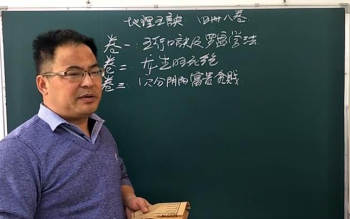 地理五诀 四册八卷
卷一:五行口诀及罗盘学法
卷二:龙生旺死绝
卷三:穴分阴阳富贵贫贱